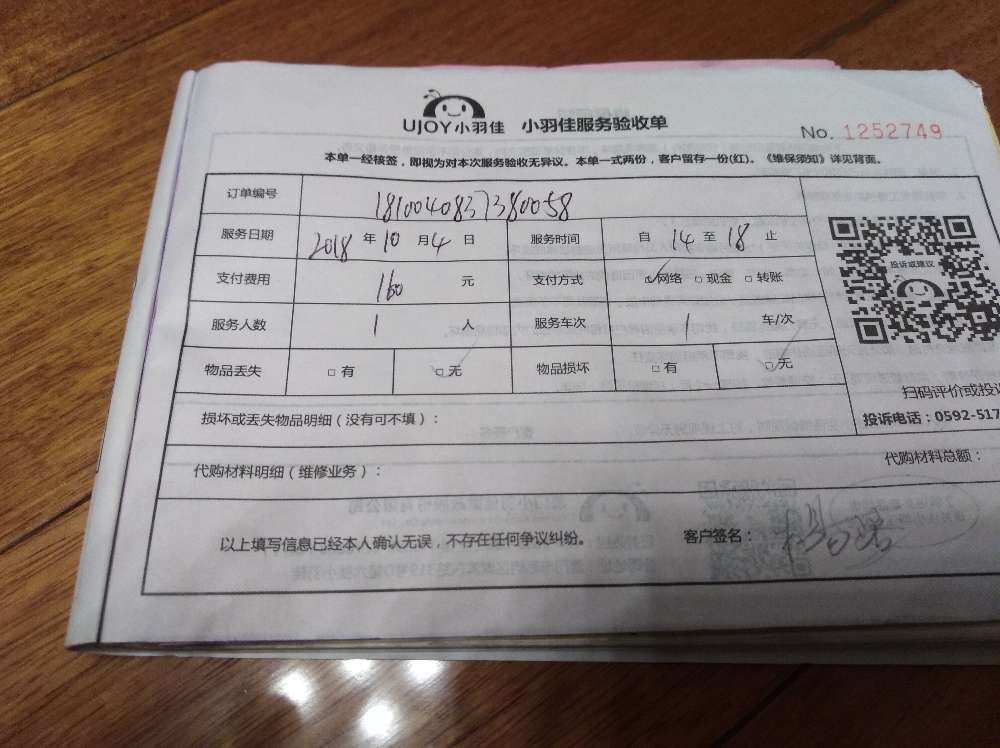 UJOY小羽佳 小羽佳服务验收单
No. 1252749
本单一经核签，即视为对本次服务验收无异议。本单一式两份，客户留存一份(红)。《维保须知》详见背面。
订单编号 1810040837380058
服务日期 2018 年 10 月 4 日 服务时间 自 14 至 18 止
支付费用 160 元 支付方式 ☑网络 □现金 □转账
服务人数 1 人 服务车次 1 车/次
物品丢失 □有 ☑无 物品损坏 □有 ☑无
投诉或建议
扫码评价或投诉
投诉电话：0592-517
损坏或丢失物品明细（没有可不填）：
代购材料明细（维修业务）： 代购材料总额：
以上填写信息已经本人确认无误，不存在任何争议纠纷。 客户签名：